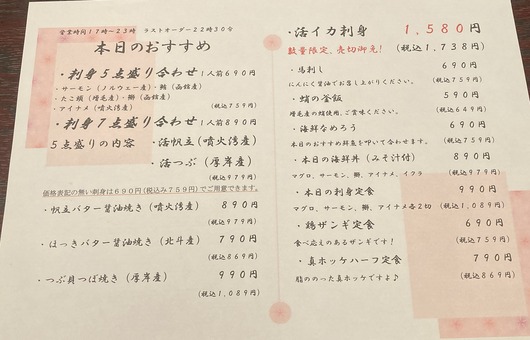 営業時間17時~23時 ラストオーダー22時30分
本日のおすすめ
・刺身5点盛り合わせ 1人前690円
・サーモン(ノルウェー産)・鮪(函館産)
・たこ頭(増毛産)・鰤(函館産)
・アイナメ(噴火湾産) (税込759円)
・刺身7点盛り合わせ 1人前890円
5点盛りの内容 ・活帆立(噴火湾産)
・活つぶ(厚岸産)
(税込979円)
価格表記の無い刺身は690円(税込み759円)でご用意できます。
・帆立バター醤油焼き(噴火湾産) 890円
(税込979円)
・ほっきバター醤油焼き(北斗産) 790円
(税込869円)
・つぶ貝つぼ焼き(厚岸産) 990円
(税込1,089円)
・活イカ刺身 1,580円
数量限定、売切御免! (税込1,738円)
・馬刺し 690円
にんにく醤油でお召し上がりください。 (税込759円)
・蛸の釜飯 590円
増毛産の蛸使用、ご賞味ください。 (税込649円)
・海鮮なめろう 690円
本日のおすすめ鮮魚を叩いて合わせます。 (税込759円)
・本日の海鮮丼(みそ汁付) 890円
マグロ、サーモン、鰤、アイナメ、イクラ (税込979円)
・本日の刺身定食 990円
マグロ、サーモン、鰤、アイナメ各2切 (税込1,089円)
・鶏ザンギ定食 690円
食べ応えのあるザンギです! (税込759円)
・真ホッケハーフ定食 790円
脂ののった真ホッケですよ♪ (税込869円)